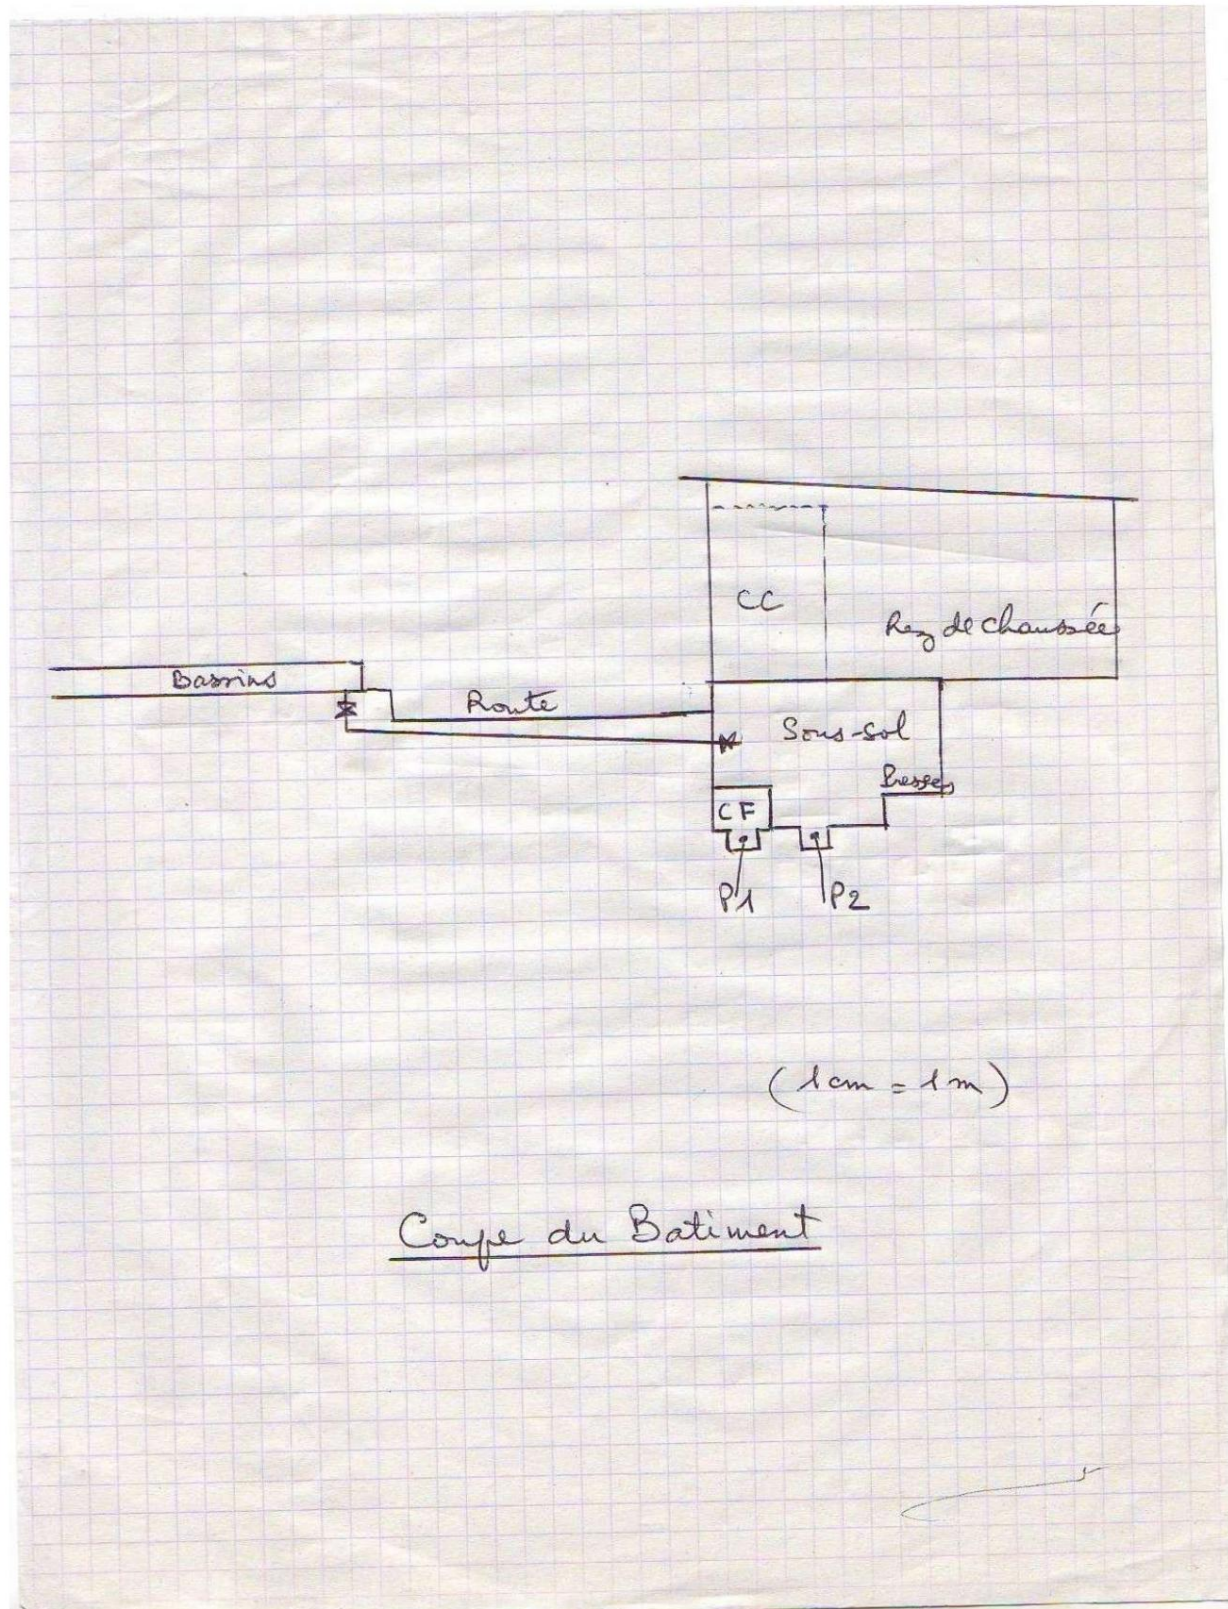 CC
Rez de chaussée
Bassins
Route
Sous-sol
Presses
CF
P1
P2
(1cm = 1m)
Coupe du Batiment